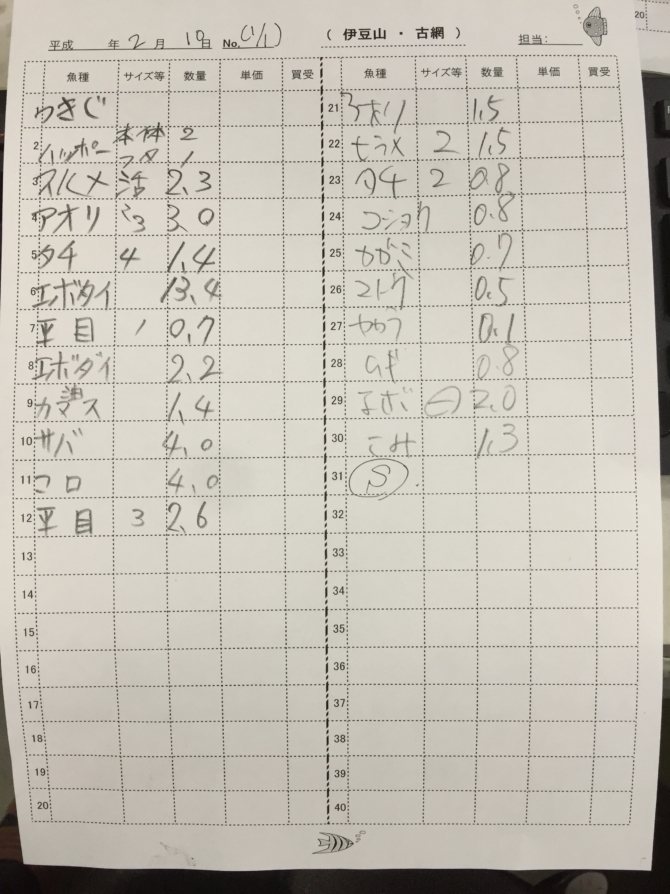 平成 年 2 月 10日 No. (1/1) ( 伊豆山 ・ 古網 ) 担当:
魚種 サイズ等 数量 単価 買受
うきぐ
2 ハッポー 本体 2
フタ 1
3 スルメ 活 2.3
4 アオリ 3 3.0
5 タチ 4 1.4
6 エボダイ 13.4
7 平目 1 0.7
8 エボダイ 2.2
9 カマス 1.4
10 サバ 4.0
11 コロ 4.0
12 平目 3 2.6
13
14
15
16
17
18
19
20
魚種 サイズ等 数量 単価 買受
21 アオリ 1.5
22 ヒラメ 2 1.5
23 タチ 2 0.8
24 コショウ 0.8
25 カガミ 0.7
26 マトウ 0.5
27 0.1
28 ムギ 0.8
29 エボ 小 2.0
30 こみ 1.3
31 S
32
33
34
35
36
37
38
39
40
20